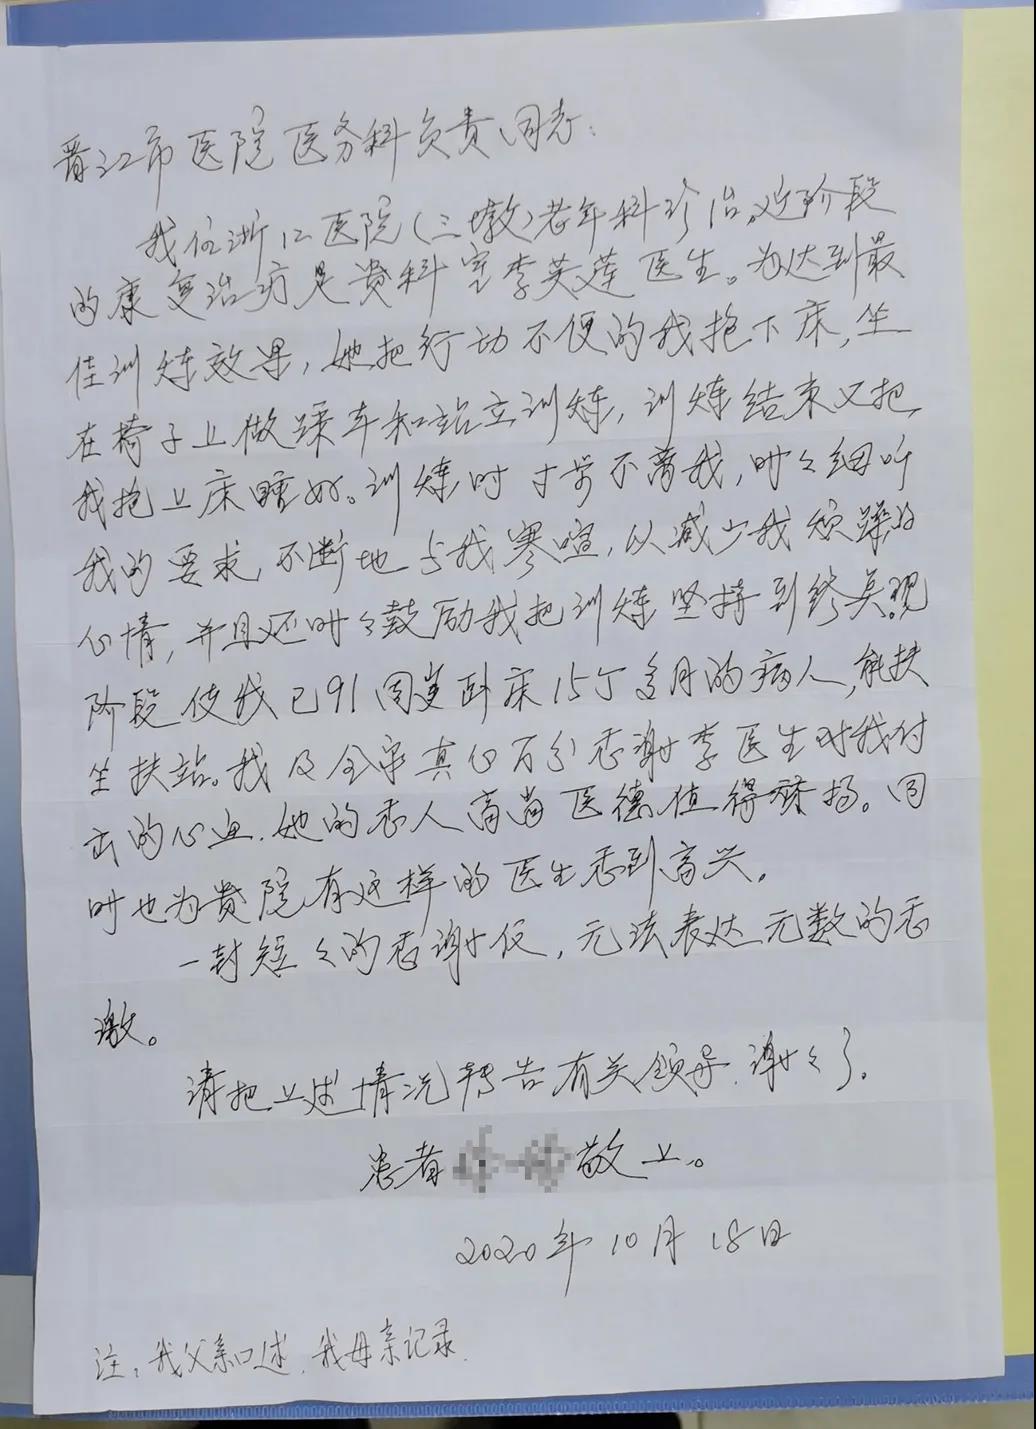 晋江市医院医务科负责同志:
我住浙江医院(三墩)老年科诊治。近阶段
的康复治疗是贵科室李英莲医生。为达到最
佳训炼效果,她把行动不便的我抱下床,坐
在椅子上做踩车和站立训炼,训炼结束又把
我抱上床睡好。训炼时寸步不离我,时々细听
我的要求,不断地与我寒喧,以减少我烦躁的
心情,并且还时々鼓励我把训炼坚持到终点。现
阶段使我已91周岁卧床15个多月的病人,能扶
坐扶站。我及全家真心万分感谢李医生对我付
出的心血.她的感人高尚医德值得赞扬。同
时也为贵院有这样的医生感到高兴。
一封短々的感谢信,无法表达无数的感
激。
请把上述情况转告有关领导.谢々了.
患者 敬上。
2020年10月18日
注:我父亲口述.我母亲记录.